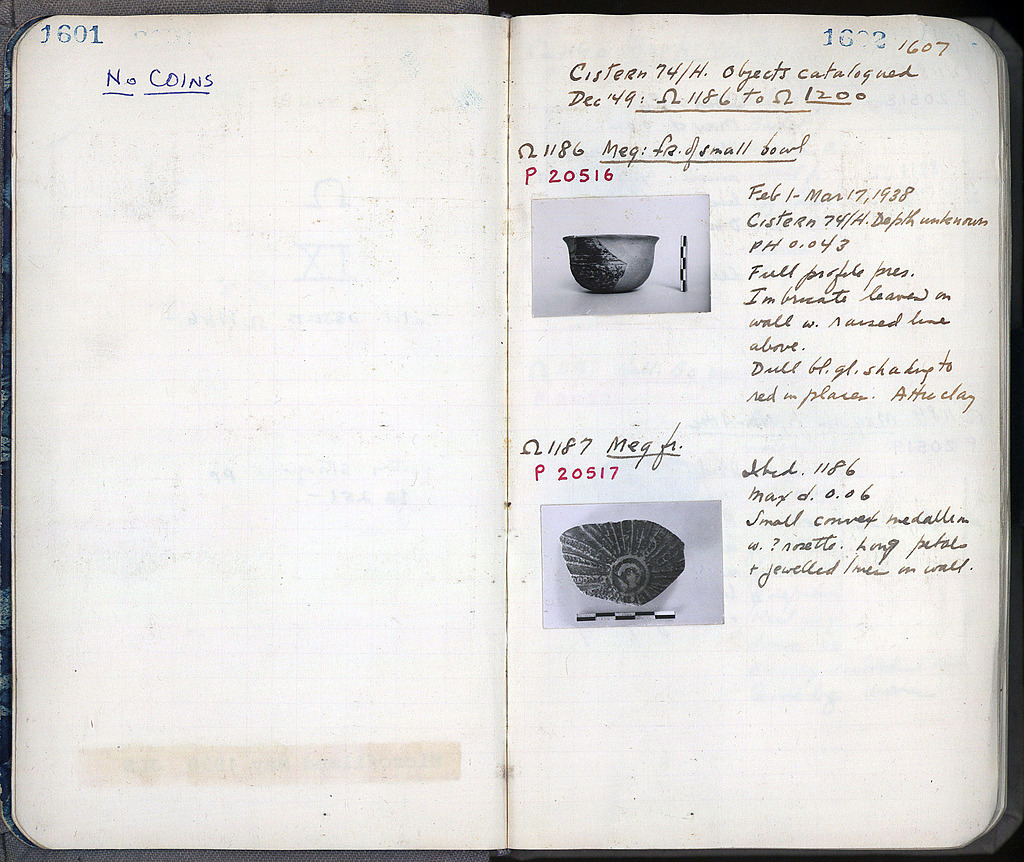 1601
No COINS
1602 1607
Cistern 74/H. Objects catalogued
Dec '49: Ω 1186 to Ω 1200
Ω 1186 Meg: fr. of small bowl
P 20516
Feb 1 - Mar 17, 1938
Cistern 74/H. Depth unknown
PH 0.043
Full profile pres.
Imbricate leaves on
wall w. raised line
above.
Dull bl. gl. shading to
red in places. Attic clay
Ω 1187 Meg fr.
P 20517
Ibid. 1186
Max d. 0.06
Small convex medallion
w. ? rosette. Long petals
+ jewelled lines on wall.